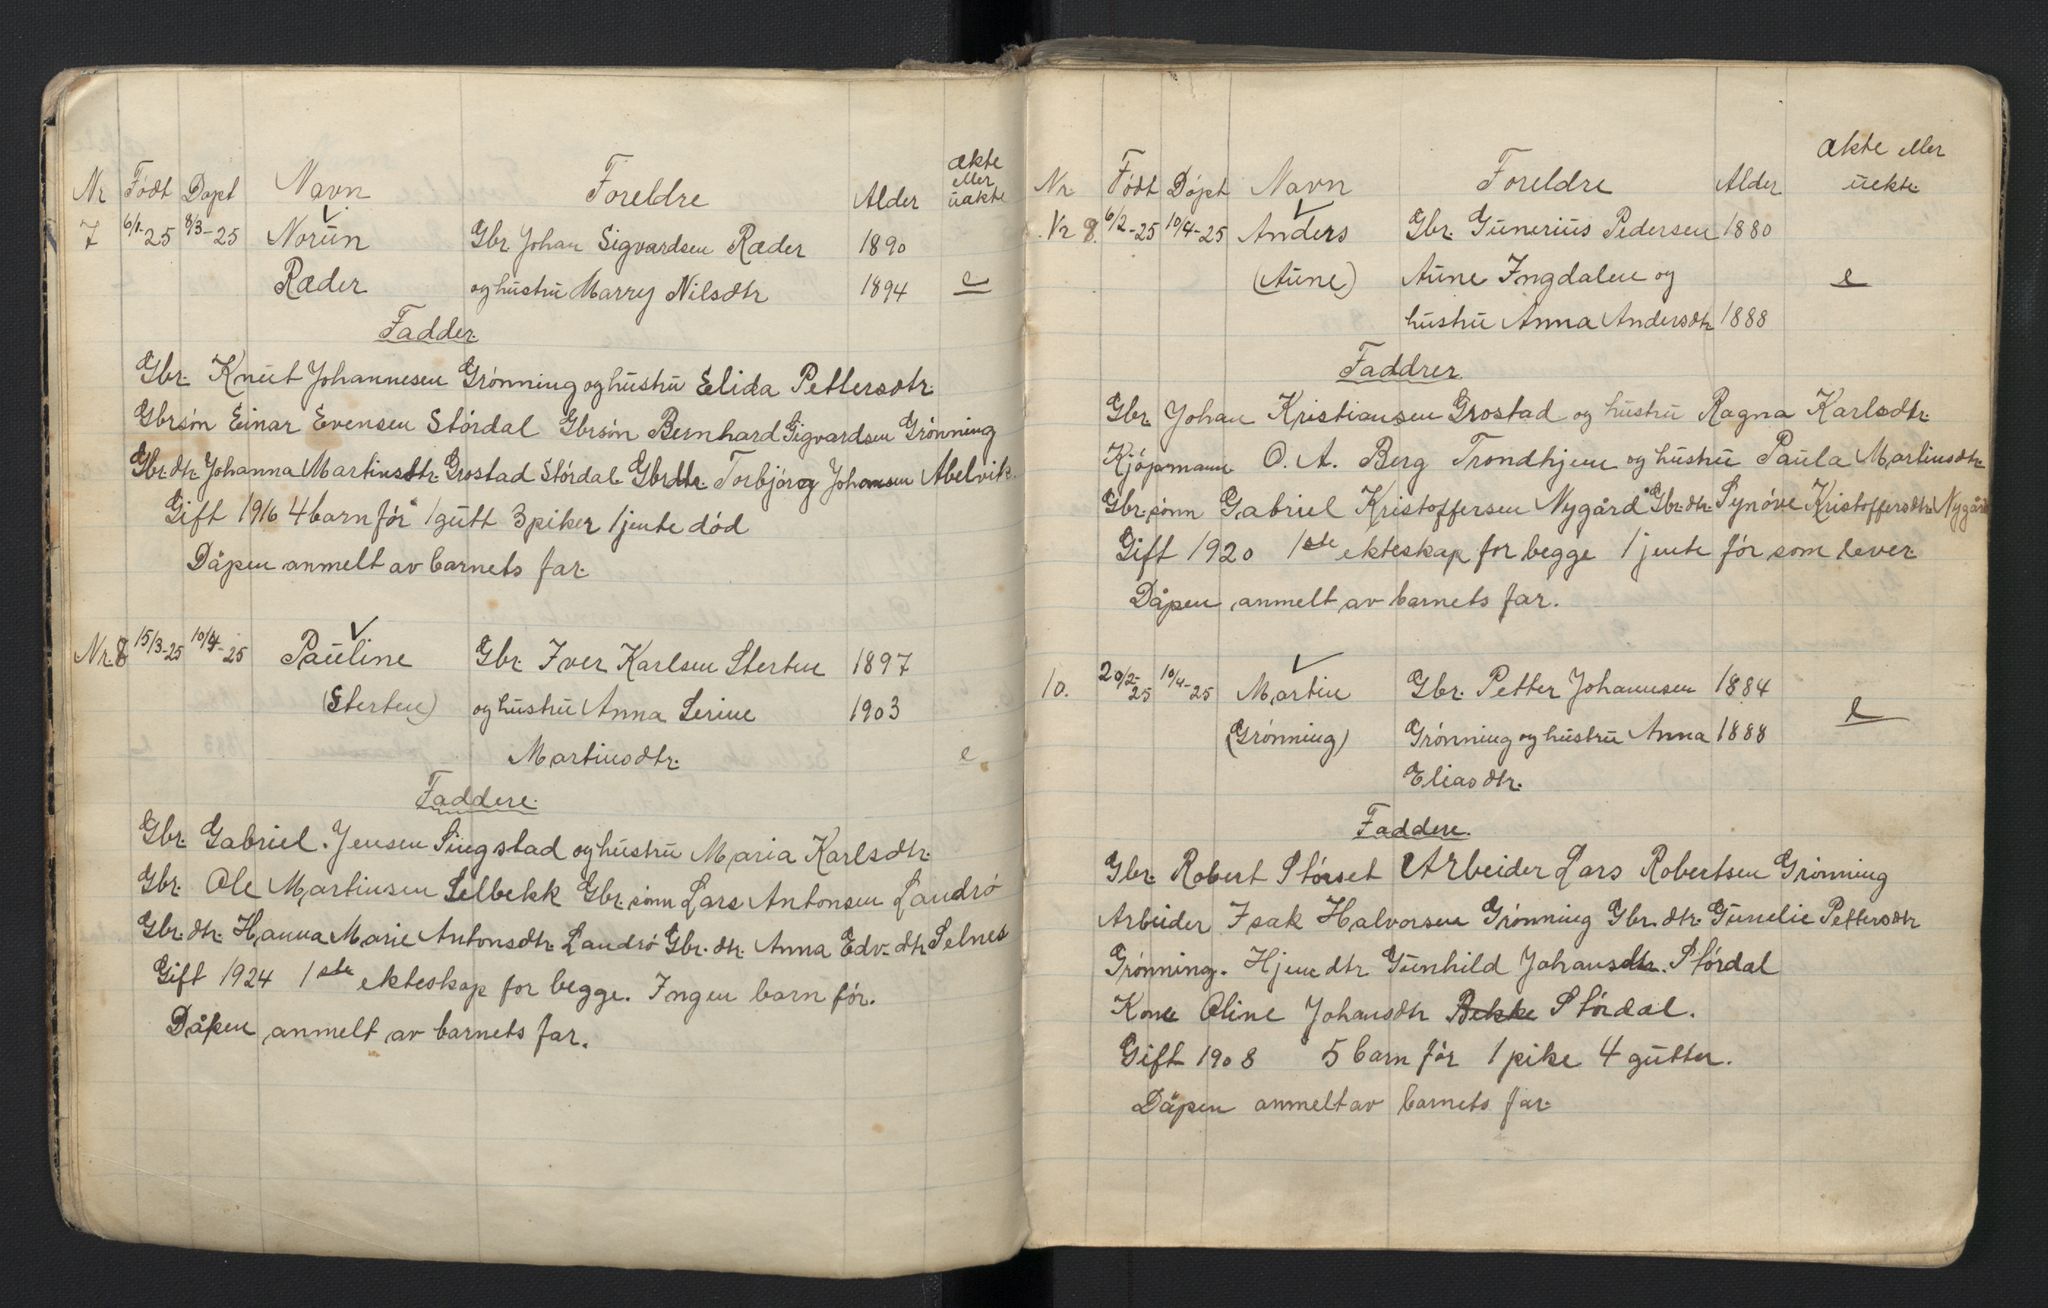 Nr Født Døpt Navn Foreldre Alder ækte eller uækte
7 6/1-25 8/3-25 Norun Gbr Johan Sigvardsen Ræder 1890
Ræder og hustru Marry Nilsdtr 1894 e
Fadder.
Gbr. Knut Johannesen Grønning og hustru Elida Pettersdtr.
Gbrsøn Einar Evensen Størdal Gbrsøn Bernhard Sigvardsen Grønning
Gbr.dtr. Johanna Martinsdtr. Grostad Størdal. Gbrdtr. Torbjørg Johansen Abelvik.
Gift 1916 4 barn før 1 gutt 3 piker 1 jente død
Dåpen anmelt av barnets far.
Nr. 8 15/3-25 10/4-25 Pauline Gbr. Iver Karlsen Sterten 1897
(Sterten) og hustru Anna Serine 1903
Martinsdtr. e
Faddere.
Gbr. Gabriel. Jensen Singstad og hustru Maria Karlsdtr.
Gbr. Ole Martinsen Selbekk Gbr.sønn Lars Antonsen Landrø
Gbr.dtr. Hanna Marie Antonsdtr. Landrø Gbr.dtr. Anna Edv.dtr Selnes
Gift 1924 1ste ekteskap for begge. Ingen barn før.
Dåpen anmelt av barnets far.
Nr. Født Døpt Navn Foreldre Alder ækte eller uekte
Nr 8. 6/2-25 10/4-25 Anders Gbr. Gunerius Pedersen 1880
(Aune) Aune Ingdalen og e
hustru Anna Andersdtr 1888
Faddrer.
Gbr. Johan Kristiansen Grostad og hustru Ragna Karlsdtr.
Kjøpmann O. A. Berg Trondhjem og hustru Paula Martinsdtr.
Gbr.sønn Gabriel Kristoffersen Nygård Gbr.dtr. Synøve Kristoffersdtr. Nygård
Gift 1920 1ste ekteskap for begge 1 jente før som lever.
Dåpen anmelt av barnets far.
10. 20/2-25 10/4-25 Martin Gbr. Petter Johannsen 1884
(Grønning) Grønning og hustru Anna 1888 e
Eliasdtr.
Faddere.
Gbr. Robert Størset Arbeider Lars Robertsen Grønning
Arbeider Isak Halvorsen Grønning Gbr.dtr. Gunelie Pettersdtr
Grønning. Hjem dtr Gunhild Johansdtr. Størdal
Kone Oline Johansdtr Bekke Størdal.
Gift 1908 5 barn før 1 pike 4 gutter.
Dåpen anmelt av barnets far.